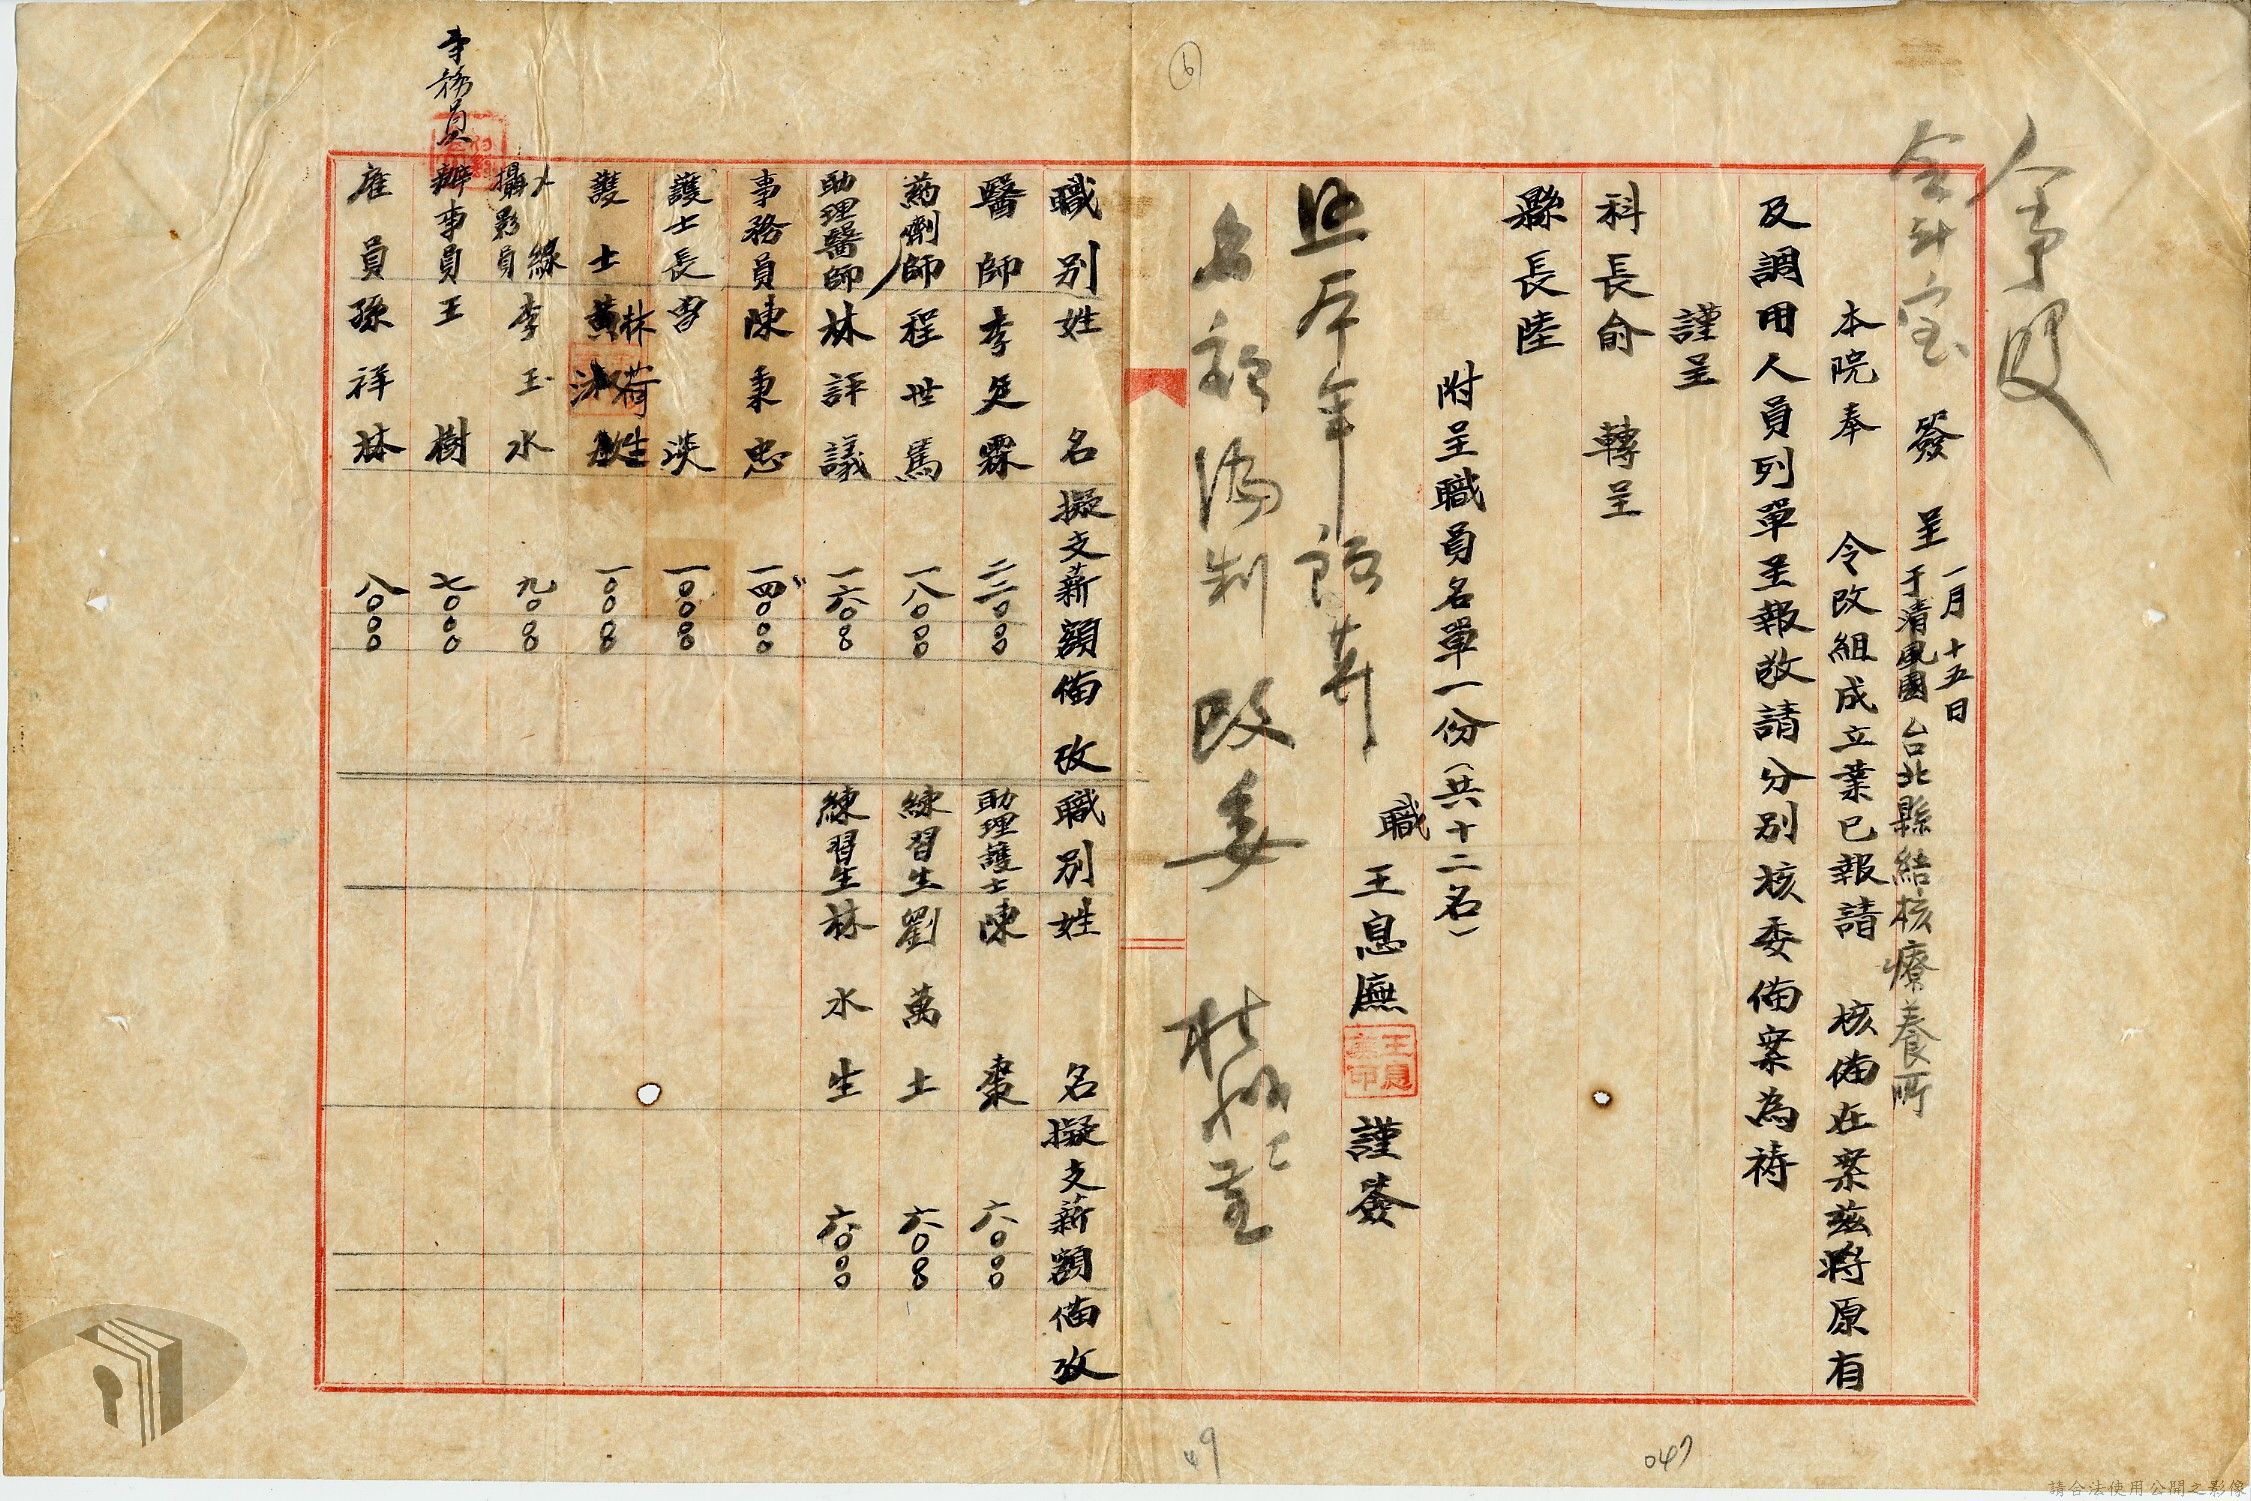 人事股
簽呈 一月十五日 于清風園台北縣結核療養所
本院奉 令改組成立業已報請 核備在案茲將原有
及調用人員列單呈報敬請分別核委備案為禱
謹呈
科長俞 轉呈
縣長陸
附呈職員名單一份(共十二名)
職 王息廡 謹簽
王息廡印
名稱編制改委
職別 姓名 擬支薪額 備攷 職別 姓名 擬支薪額 備攷
醫師 李 霖 二二〇〇〇 助理護士 陳棗 六〇〇〇
葯劑師 程世馬 一八〇〇〇 練習生 劉萬土 六〇〇〇
助理醫師 林評議 一六〇〇〇 練習生 林水生 六〇〇〇
事務員 陳秉忠 一四〇〇〇
護士長 曹淡 一〇〇〇〇
護士 黃 林荷姓 一〇〇〇〇
X線攝影員 李玉水 九〇〇〇
事務員
辦事員 王樹 七〇〇〇
雇員 孫祥林 八〇〇〇
6
49
047
請合法使用公開之影像